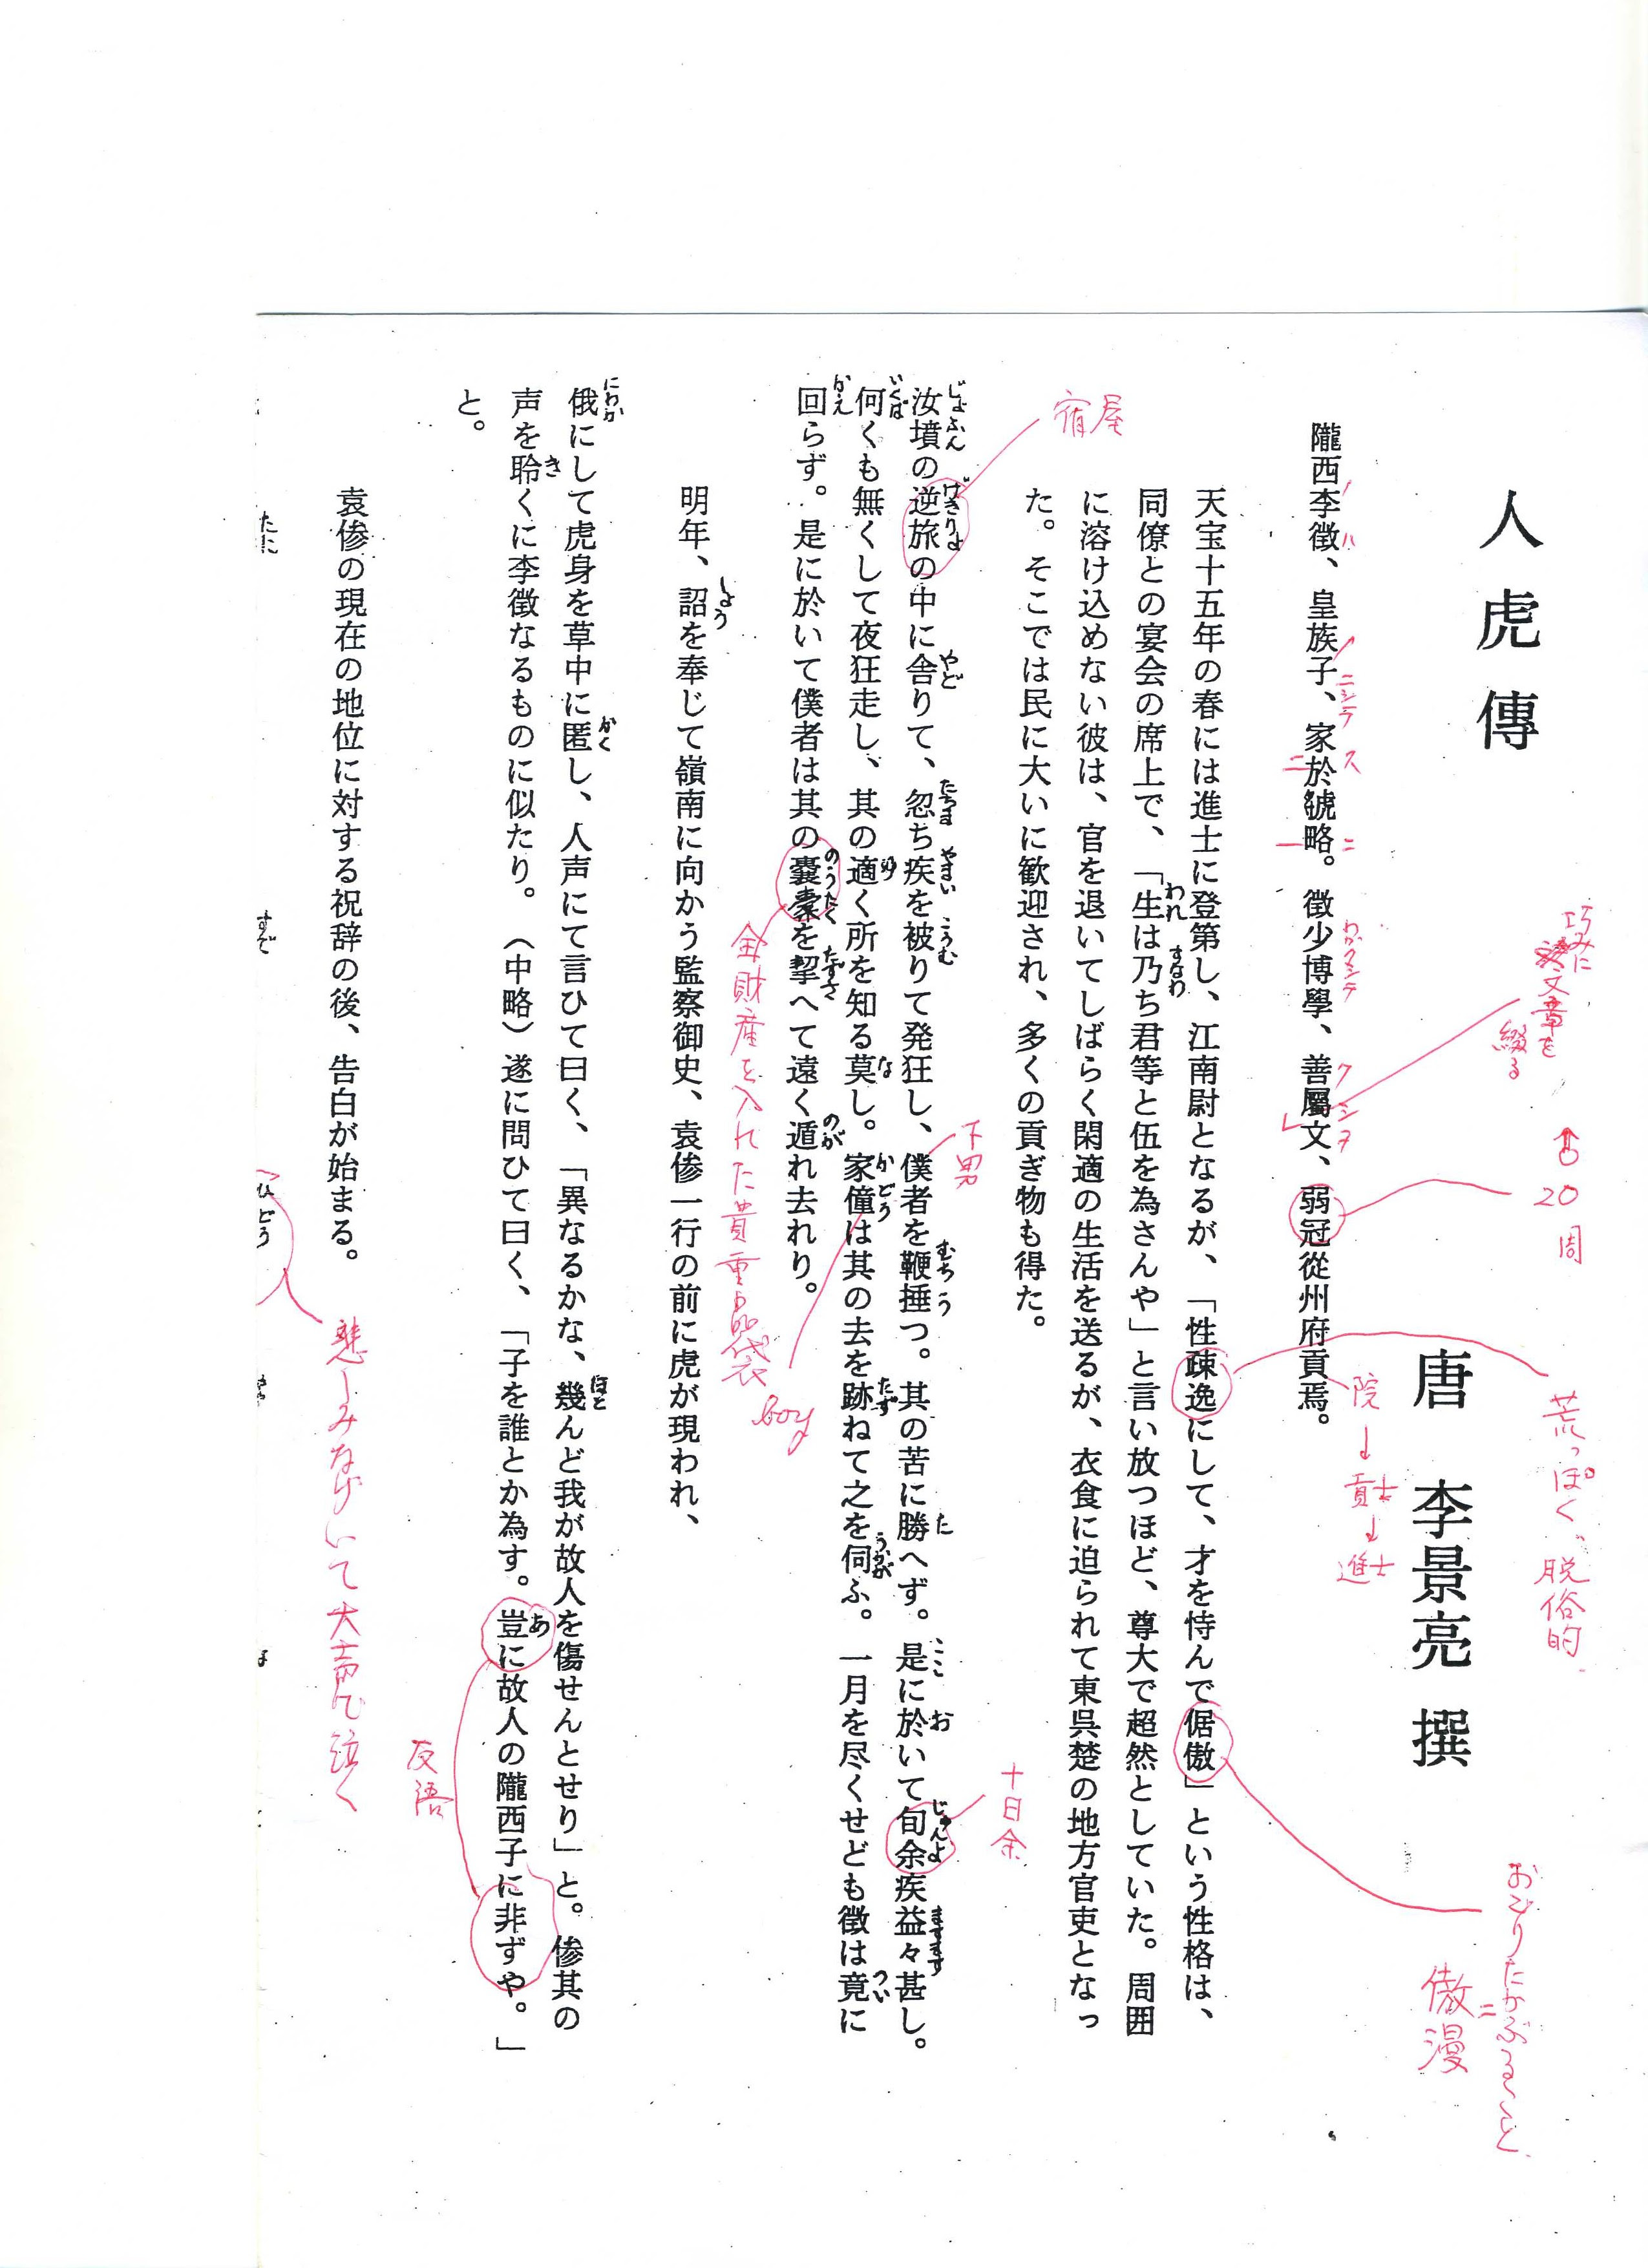 人虎傳
唐 李景亮 撰
隴西李徴、皇族子、家於虢略。徴少博學、善屬文、弱冠從州府貢焉。
ノ ハ ノ ニシテ ス 二 一 ニ わかクシテ クシヲ レ
巧みに
文章を
綴る
20
周
院→貢士→進士
天宝十五年の春には進士に登第し、江南尉となるが、「性疎逸にして、才を恃んで倨傲」という性格は、
荒っぽく、脱俗的
おごりたかぶること
=
傲慢
同僚との宴会の席上で、「生は乃ち君等と伍を為さんや」と言い放つほど、尊大で超然としていた。周囲
われ すなわ
に溶け込めない彼は、官を退いてしばらく閑適の生活を送るが、衣食に迫られて東呉楚の地方官吏となっ
た。そこでは民に大いに歓迎され、多くの貢ぎ物も得た。
汝墳の逆旅の中に舎りて、忽ち疾を被りて発狂し、僕者を鞭捶つ。其の苦に勝へず。是に於いて旬余疾益々甚し。
じょふん げきりよ やど たちま やまい こうむ むちう た ここ お じゅんよ ますます
宿屋
下男
十日余
何くも無くして夜狂走し、其の適く所を知る莫し。家僮は其の去を跡ねて之を伺ふ。一月を尽くせども徴は竟に
いくば ゆ な かどう たず うかが つい
boy
回らず。是に於いて僕者は其の囊橐を挈へて遠く遁れ去れり。
かえ のうたく たずさ のが
金財産を入れた貴重品袋
明年、詔を奉じて嶺南に向かう監察御史、袁傪一行の前に虎が現われ、
しょう
俄にして虎身を草中に匿し、人声にて言ひて曰く、「異なるかな、幾んど我が故人を傷せんとせり」と。傪其の
にわか かく ほと
声を聆くに李徴なるものに似たり。（中略）遂に問ひて曰く、「子を誰とか為す。豈に故人の隴西子に非ずや。」
き あ
反語
と。
袁傪の現在の地位に対する祝辞の後、告白が始まる。
悲しみなげいて大声で泣く
たに
すで
ひどう
人